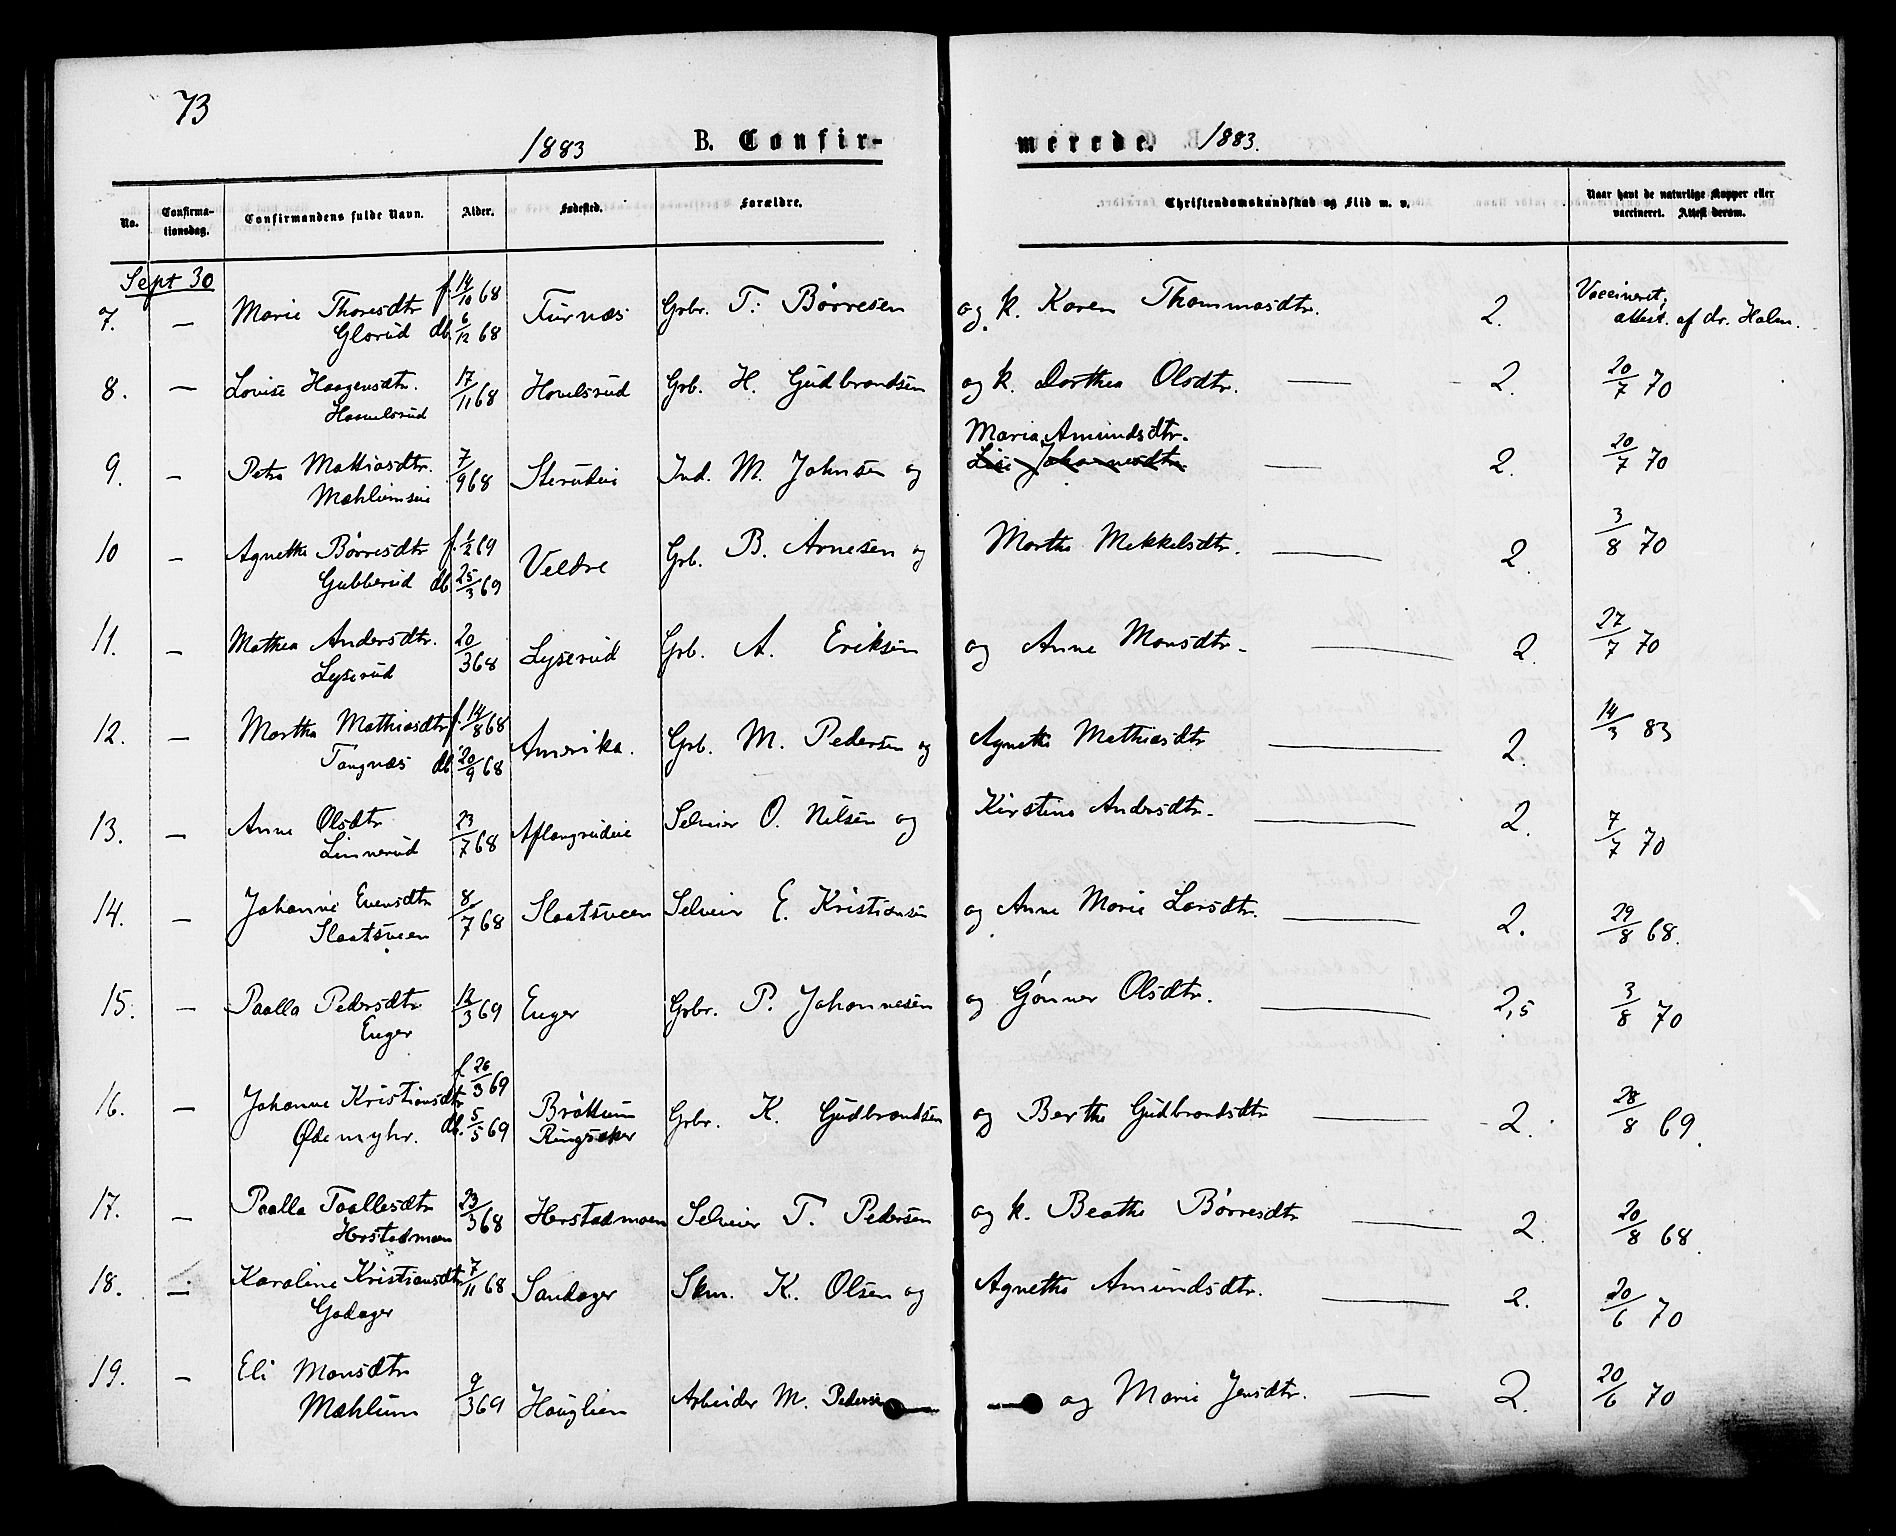 73
1883 B. Confir- merede. 1883.
No. Confirma- tionsdag. Confirmandens fulde Navn. Alder. Fødested. Forældre. Christendomskundskab og Flid m. v. Naar havt de naturlige Kopper eller vaccineret. Attest derom.
Sept 30
7. — Marie Thoresdtr f. 14/10 68 Furnæs Grbr. T. Børresen og k. Karen Thommasdtr. 2. Vaccineret,
Glorud db. 6/12 68 attest. af dr. Holm.
8. — Lovise Haagensdtr. 17/11 68 Hovelsrud Grb. H. Gudbrandsen og k. Dorthea Olsdtr. — 2. 20/7 70
Hovelsrud
Maria Amundsdtr.
9. — Petra Mathiasdtr. 7/9 68 Ind. M. Johnsen og Lise Johannesdtr. — 2. 20/7 70
Mæhlumseie
10 — Agnethe Børresdtr f. 1/2 69 Veldre Grb. B. Arnesen og Marthe Mekkelsdtr. — 2. 3/8 70
Gubberud db. 25/3 69
11. — Mathea Andersdtr. 20/3 68 Lyserud Grb. A. Eriksen og Anne Monsdtr. — 2. 27/7 70
Lyserud
12. — Martha Mathiasdtr f. 14/8 68 Amerika. Grb. M. Pedersen og Agnethe Mathiasdtr — 2. 14/3 83
Tangnæs db. 20/9 68
13. — Anne Olsdtr 23/7 68 Aflangrudeie Selveier O. Nilsen og Kirstine Andersdtr. — 2. 7/7 70
Linnerud
14. — Johanne Evensdtr 8/7 68 Slaatsveen Selveier E. Kristiansen og Anne Marie Larsdtr. — 2. 29/8 68.
Slaatsveen
15. — Paalla Pedersdtr 12/3 69 Enger Grbr. P. Johannesen og Gønner Olsdtr. — 2,5 3/8 70
Enger
16. — Johanne Kristiansdtr f. 26/3 69 Brøttum Grbr. K. Gudbrandsen og Berthe Gudbrandsdtr — 2. 28/8 69.
Ødemyhr. db. 5/5 69 Ringsaker
17. — Paalla Taallesdtr 23/3 68 Herstadmoen Selveier T. Pedersen og k. Beathe Børresdtr — 2. 20/8 68.
Herstadmoen
18. — Karoline Kristiansdtr 7/11 68 Sandager Skm. K. Olsen og Agnethe Amundsdtr. — 2. 20/6 70
Godager
19. — Eli Monsdtr 9/3 69 Houglien Arbeider M. Pedersen og Marie Jensdtr. — 2. 20/6 70
Mæhlum